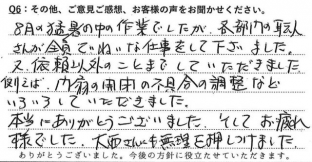 Q6：その他、ご意見ご感想、お客様の声をお聞かせください。
8月の猛暑の中の作業でしたが、各部門の職人
さんが全員ていねいな仕事をして下さいました。
又、依頼以外のことまでしていただきました。
例えば、門扉の開閉の不具合の調整など
いろいろしていただきました。
本当にありがとうございました。そしてお疲れ
様でした。大西さんも無理を押しつけました。
ありがとうございました。今後の方針に役立たせていただきます。